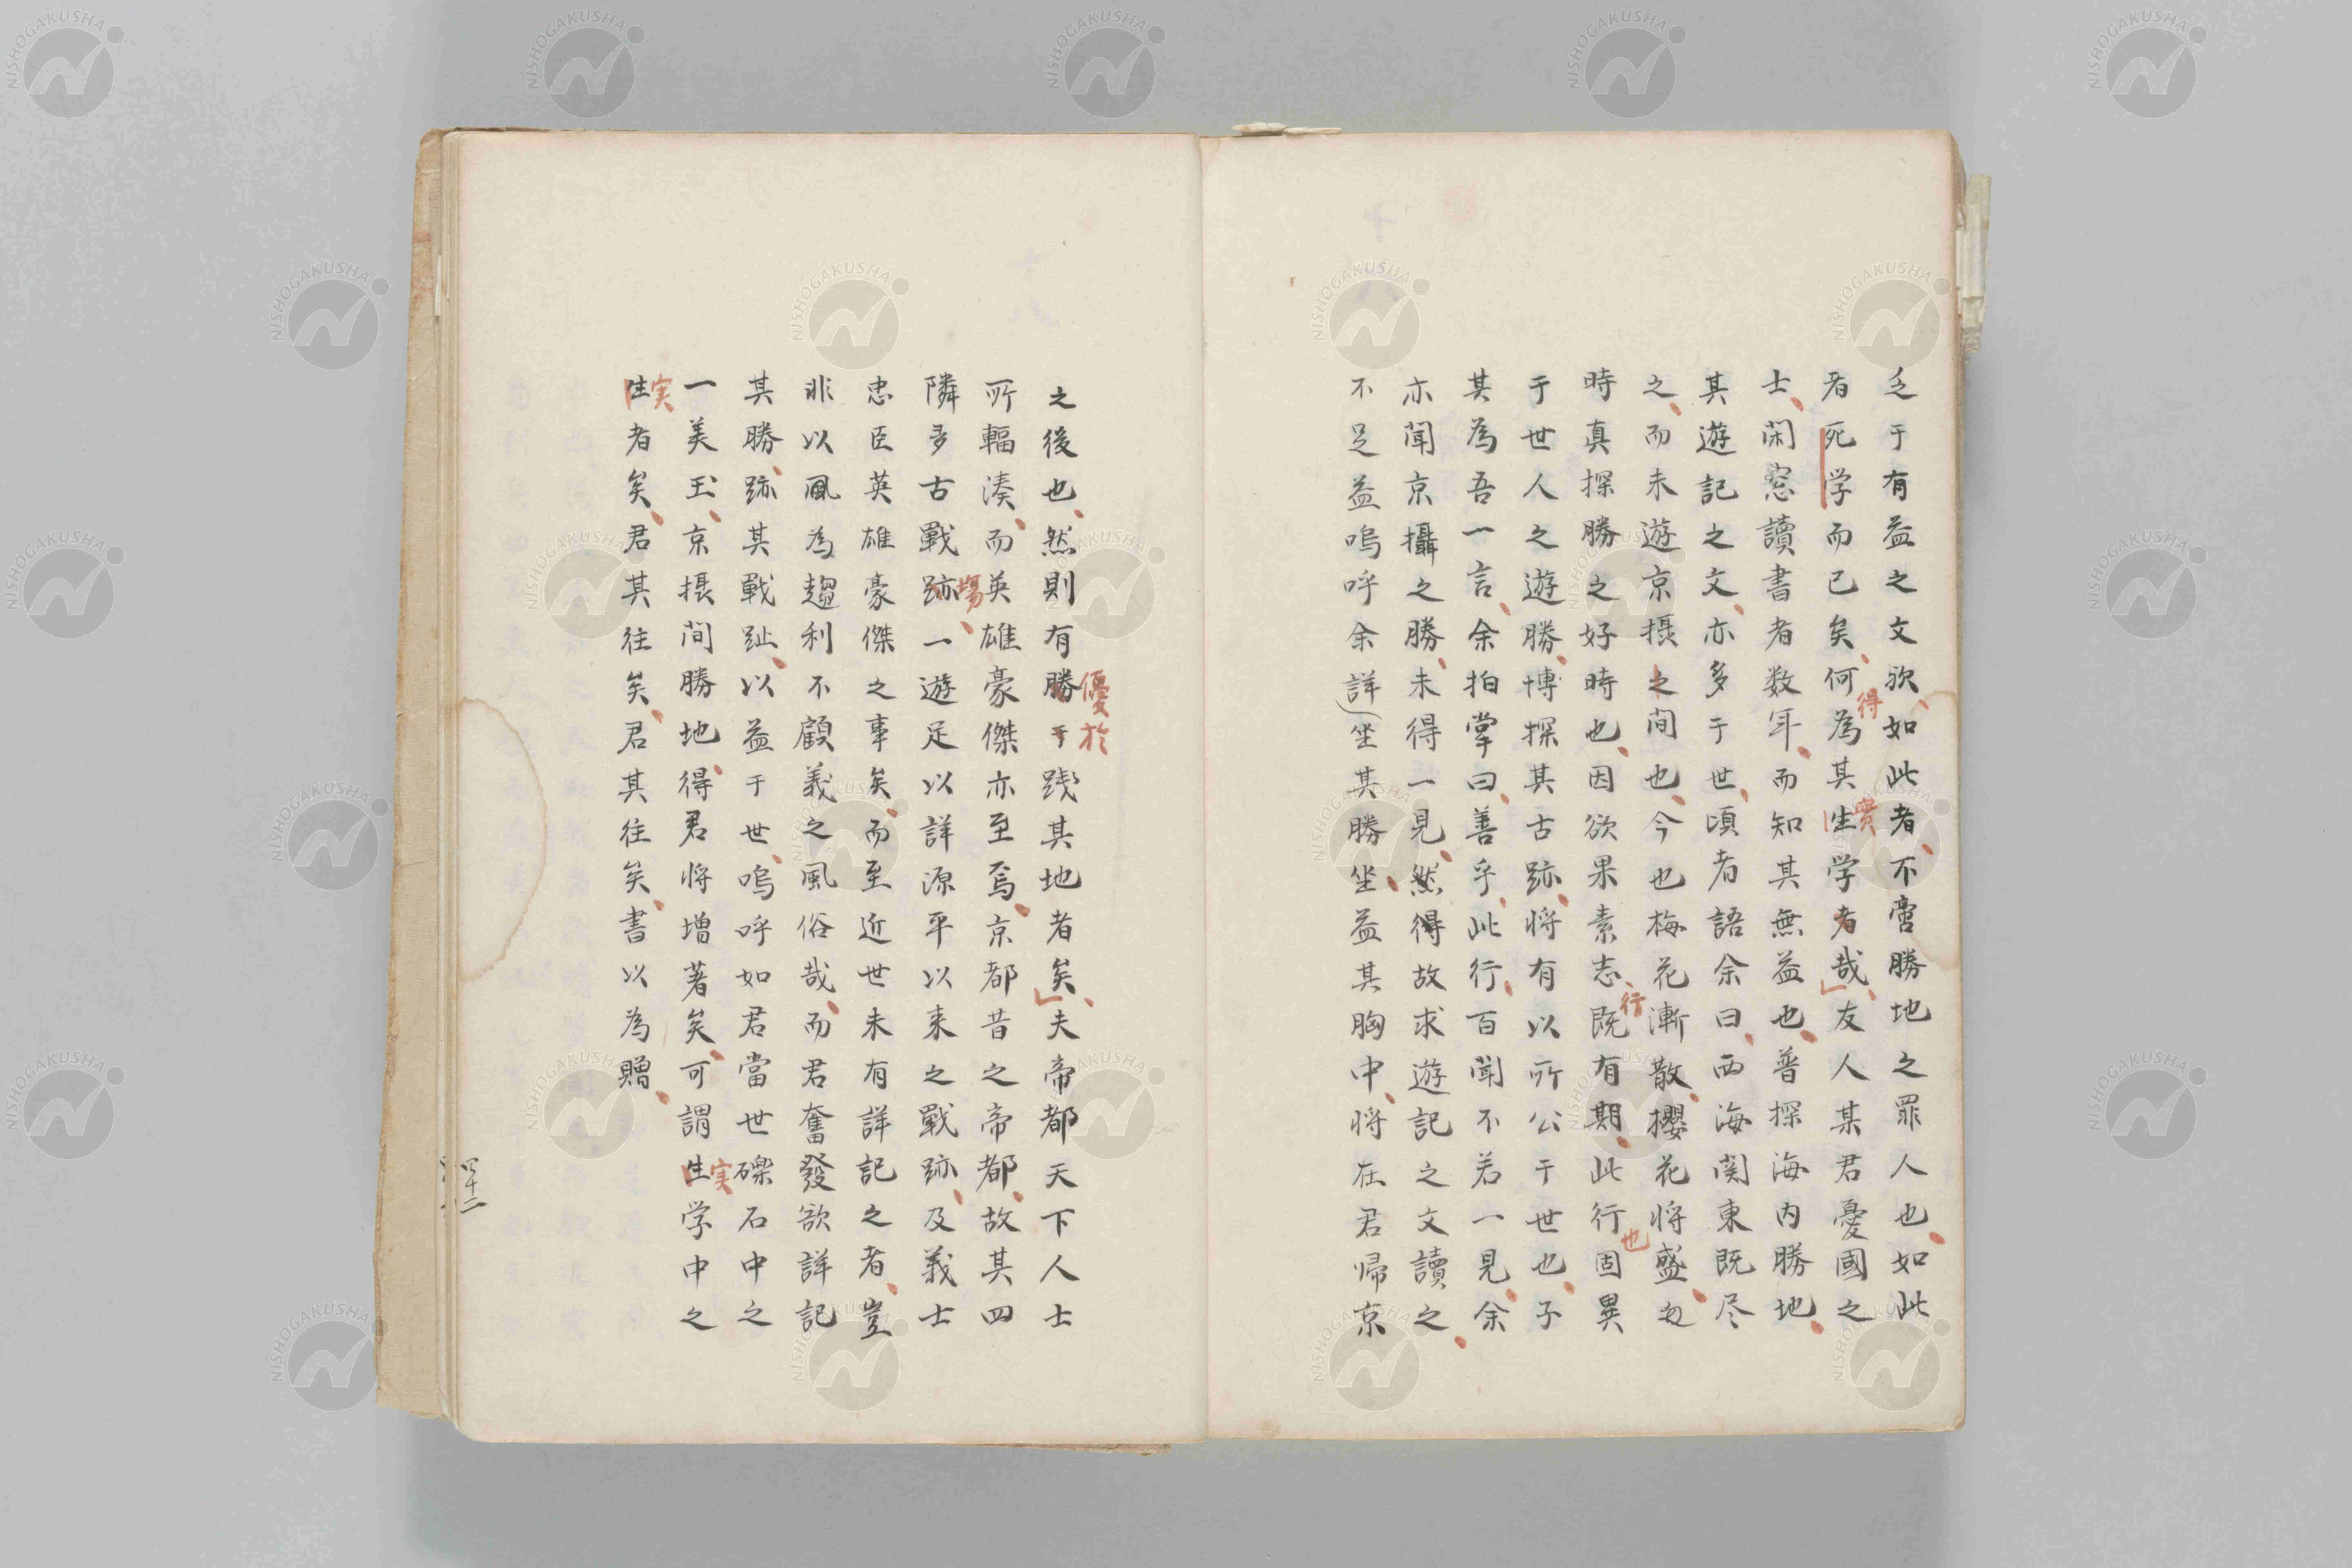 乏于有益之文欤如此者不啻勝地之罪人也如此
者死学而已矣何為其生学者哉友人某君憂國之
得
實
士閑窓讀書者数年而知其無益也普探海内勝地
其遊記之文亦多于世頃者語余曰西海関東既尽
之而未遊京摂之間也今也梅花漸散櫻花将盛
時真探勝之好時也因欲果素志既有期此行固異
行
也
于世人之遊勝博探其古跡将有以所公于世也子
其為吾一言余拍掌曰善乎此行百聞不若一見余
亦聞京攝之勝未得一見然得故求遊記之文讀之
不足益嗚呼余詳坐其勝坐益其胸中将在君帰京
之後也然則有勝于践其地者矣夫帝都天下人士
優於
所輻湊而英雄豪傑亦至焉京都昔之帝都故其四
隣多古戰跡一遊足以詳源平以来之戰跡及義士
場
忠臣英雄豪傑之事矣而至近世未有詳記之者豈
非以風為趨利不顧義之風俗哉而君奮發欲詳記
其勝跡其戰趾以益于世嗚呼如君當世礫石中之
一美玉京摂間勝地得君将増著矣可謂生学中之
実
生者矣君其往矣君其往矣書以為贈
実
四十二
NISHOGAKUSHA